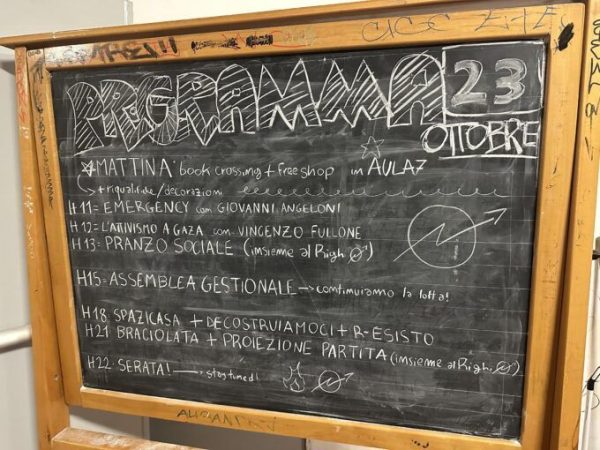 PROGRAMMA 23
OTTOBRE
MATTINA: book crossing + free shop in AULA 7
+ riqualifiche/decorazioni
H 11= EMERGENCY com GIOVANNI ANGELONI
H 12= L'ATTIVISMO A GAZA com VINCENZO FULLONE
H 13= PRANZO SOCIALE (insieme al Righi)
H15= ASSEMBLEA GESTIONALE → continuiamo la lotta!
H18 SPAZICASA + DECOSTRUIAMOCI + R-ESISTO
H21 BRACIOLATA + PROIEZIONE PARTITA (insieme al Righi)
H22 SERATA! → stay tuned!